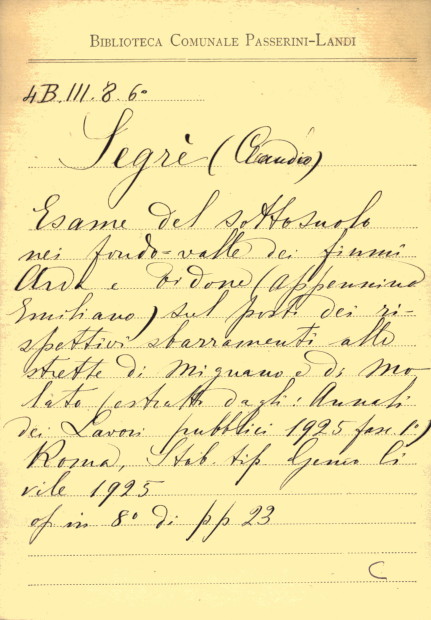 BIBLIOTECA COMUNALE PASSERINI-LANDI
4B.III.8.6º
Segrè (Claudio)
Esame del sottosuolo
nei fondo-valle dei fiumi
Arda e Tidone (Appennino
Emiliano) sul posti dei ri-
spettivi sbarramenti alle
strette di Mignano e di Mo
lato (estratti dagli: Annali
dei Lavori pubblici 1925 fasc. 1º)
Roma, Stab. tip Genio Ci
vile 1925
op in 8º di pp 23
C